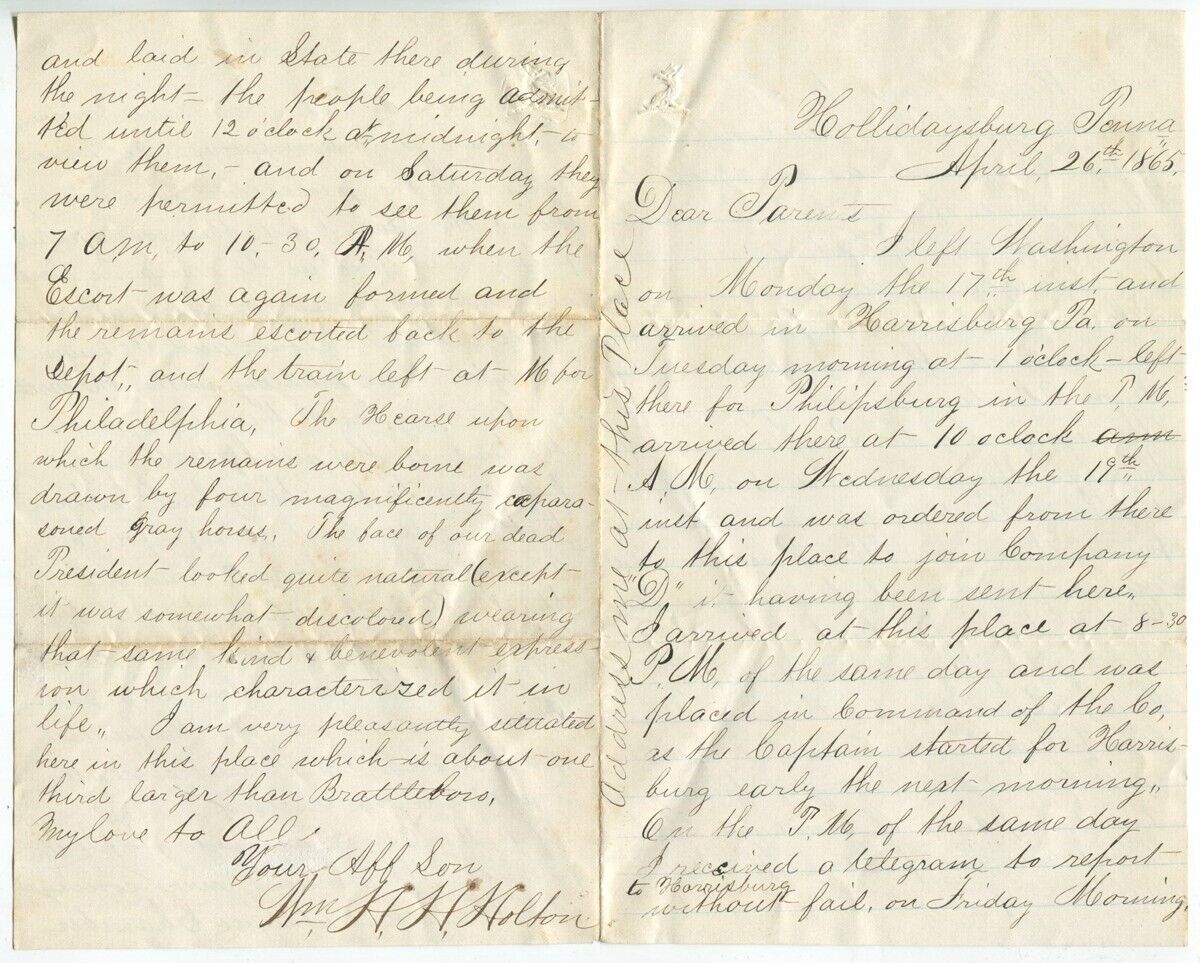 Hollidaysburg Penna
April, 26th 1865.
Dear Parents
I left Washington
on Monday the 17th inst. and
arrived in Harrisburg Pa. on
Tuesday morning at 1 o'clock - left
there for Philipsburg in the P. M,
arrived there at 10 oclock a.m
A. M, on Wednesday the 19th
inst and was ordered from there
to this place to join Company
"D" it having been sent here,,
I arrived at this place at 8-30
P. M, of the same day and was
placed in Command of the Co,
as the Captain started for Harris-
burg early the next morning,,
On the P. M, of the same day
I received a telegram to report
to Harrisburg
without fail, on Friday Morning,
Address me at this Place
and laid in State there during
the night - the people being admit-
t'd until 12 o'clock at midnight, to
view them, - and on Saturday they
were permitted to see them from
7 a,m, to 10,-30, A, M, when the
Escort was again formed and
the remains escorted back to the
depot,, and the train left at M for
Philadelphia, The Hearse upon
which the remains were borne was
drawn by four magnificently capara-
soned gray horses,. The face of our dead
President looked quite natural (except
it was somewhat discolored) wearing
that same kind & benevolent express-
ion which characterized it in
life,, I am very pleasantly situated
here in this place which is about one
third larger than Brattleboro,
My love to All,
Your Aff Son
Wm H, H, Holton